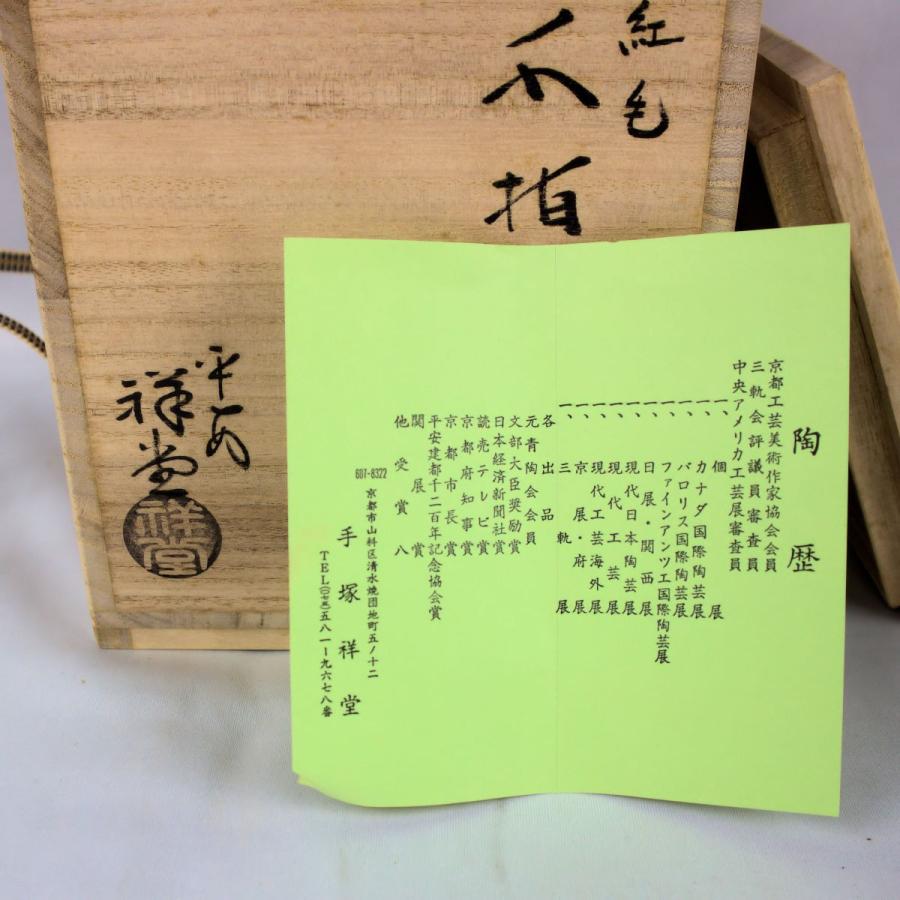 紅毛
水指
平安
祥堂
祥堂
陶歴
京都工芸美術作家協会会員
三軌会評議員審査員
中央アメリカ工芸展審査員
一、個展
一、カナダ国際陶芸展
一、バロリス国際陶芸展
一、ファインアンツ工国際陶芸展
一、日展・関西展
一、現代日本陶芸展
一、現代工芸展
一、現代工芸海外展
一、京展・府展
一、三軌展
各出品
元青陶会会員
文部大臣奨励賞
日本経済新聞社賞
読売テレビ賞
京都府知事賞
京都市長賞
平安建都千二百年記念協会賞
関展賞
他受賞八
607-8322
京都市山科区清水焼団地町五ノ十二
手塚祥堂
TEL(〇七五)五八一ー九六七八番